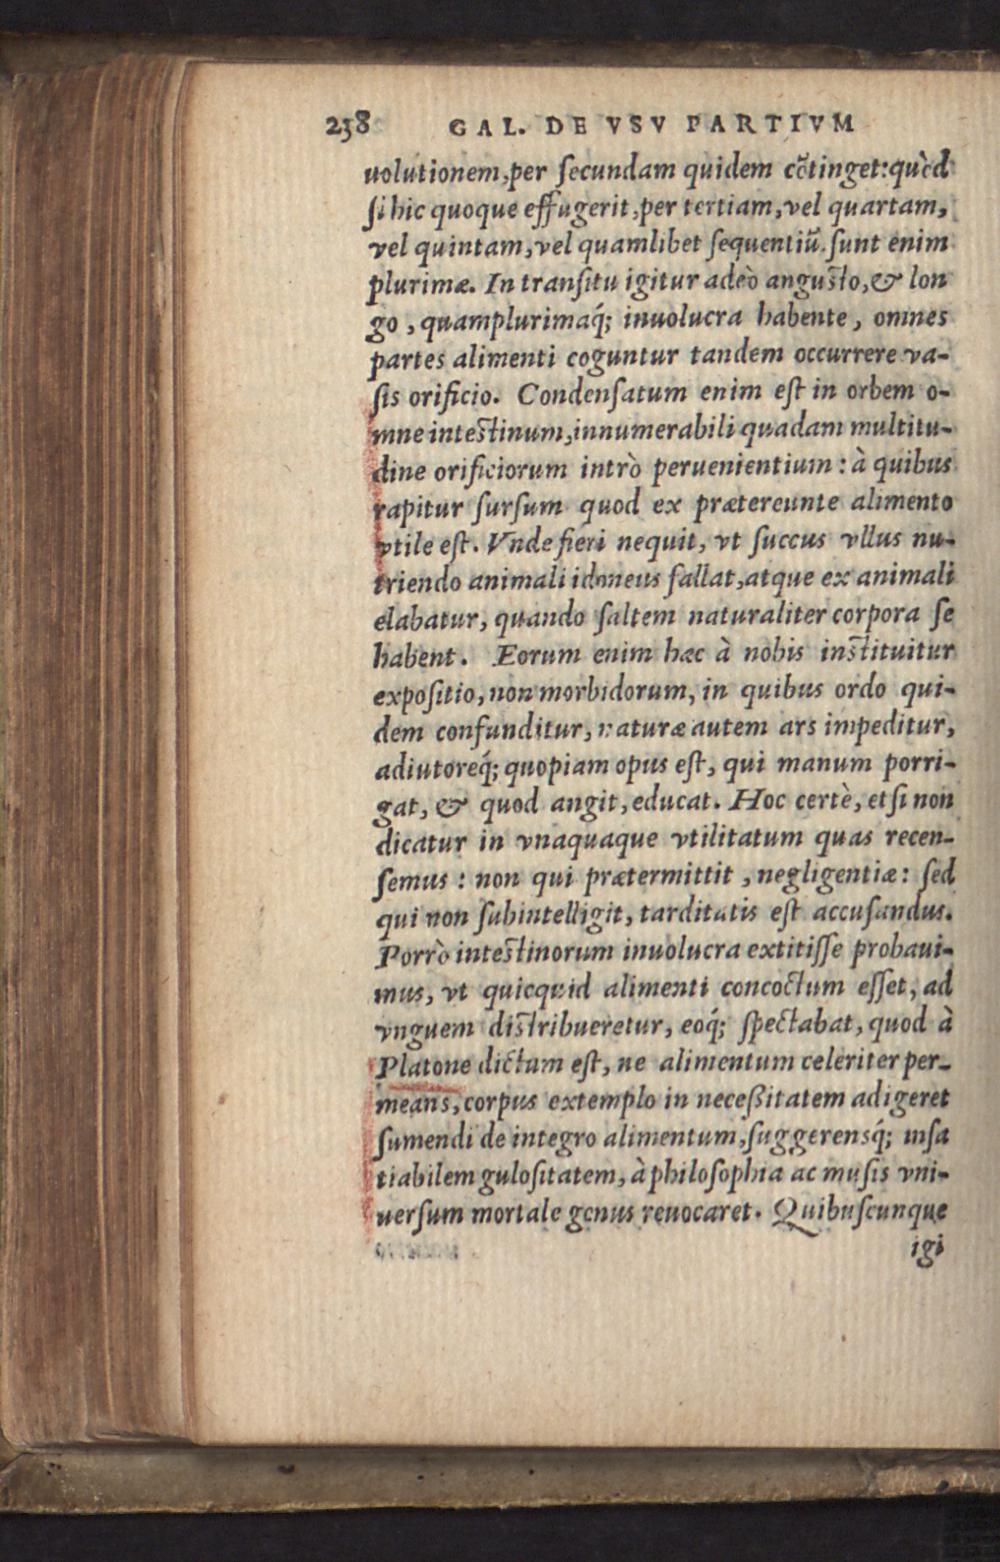 238 GAL. DE VSV PARTIVM
uolutionem, per ſecundam quidem cõtinget: quòd
ſi hic quoque effugerit, per tertiam, vel quartam,
vel quintam, vel quamlibet ſequentiũ. ſunt enim
plurimæ. In tranſitu igitur adeò anguſto, & lon
go, quamplurimaq́; inuolucra habente, omnes
partes alimenti coguntur tandem occurrere va-
ſis orificio. Condenſatum enim eſt in orbem o-
mne inteſtinum, innumerabili quadam multitu-
dine orificiorum intrò peruenientium: à quibus
rapitur ſurſum quod ex prætereunte alimento
vtile eſt. Vnde fieri nequit, vt ſuccus vllus nu-
triendo animali idoneus fallat, atque ex animali
elabatur, quando ſaltem naturaliter corpora ſe
habent. Eorum enim hæc à nobis inſtituitur
expoſitio, non morbidorum, in quibus ordo qui-
dem confunditur, naturæ autem ars impeditur,
adiutoreq́; quopiam opus eſt, qui manum porri-
gat, & quod angit, educat. Hoc certè, etſi non
dicatur in vnaquaque vtilitatum quas recen-
ſemus: non qui prætermittit, negligentiæ: ſed
qui non ſubintelligit, tarditatis eſt accuſandus.
Porrò inteſtinorum inuolucra extitiſſe probaui-
mus, vt quicquid alimenti concoctum eſſet, ad
vnguem diſtribueretur, eoq́; ſpectabat, quod à
Platone dictum eſt, ne alimentum celeriter per-
means, corpus extemplo in neceßitatem adigeret
ſumendi de integro alimentum, ſuggerensq́; inſa
tiabilem guloſitatem, à philoſophia ac muſis vni-
uerſum mortale genus reuocaret. Quibuſcunque
igi